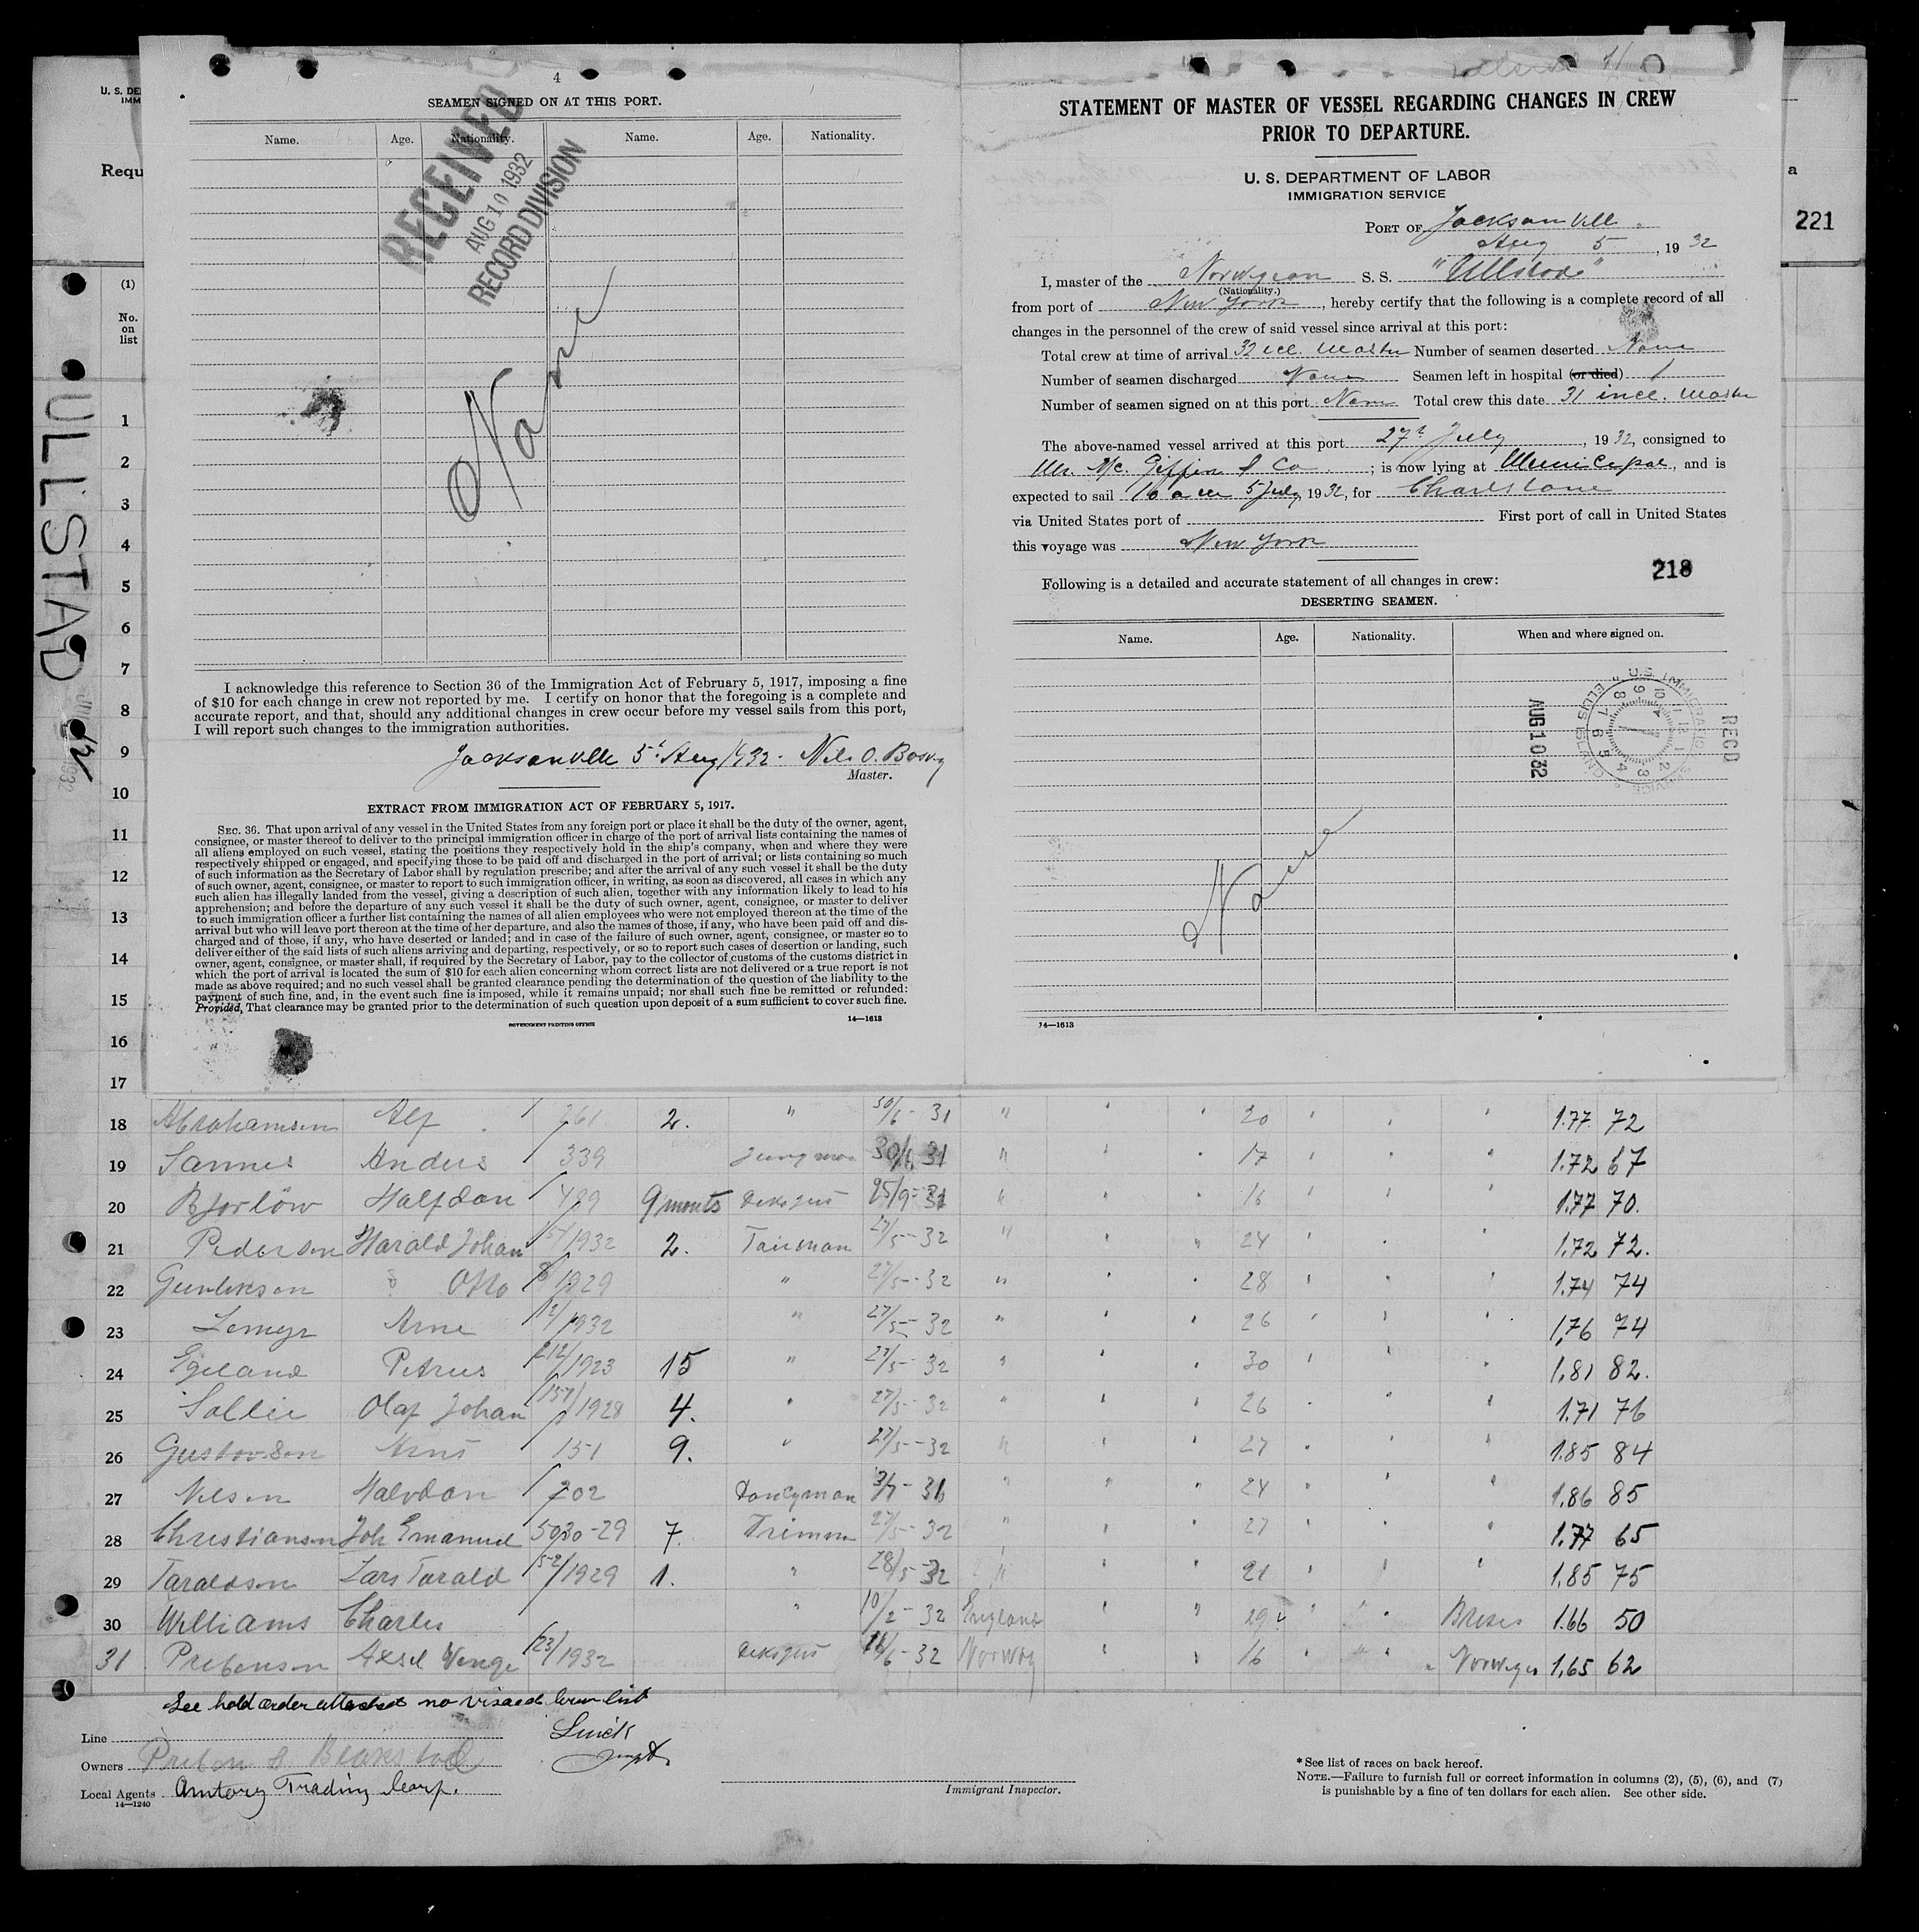 4
SEAMEN SIGNED ON AT THIS PORT.
Name. Age. Nationality. Name. Age. Nationality.
RECEIVED
AUG 10 1932
RECORD DIVISION
None
I acknowledge this reference to Section 36 of the Immigration Act of February 5, 1917, imposing a fine
of $10 for each change in crew not reported by me. I certify on honor that the foregoing is a complete and
accurate report, and that, should any additional changes in crew occur before my vessel sails from this port,
I will report such changes to the immigration authorities.
Jacksonville 5' Aug 1932 - Nils O.
Master.
EXTRACT FROM IMMIGRATION ACT OF FEBRUARY 5, 1917.
SEC. 36. That upon arrival of any vessel in the United States from any foreign port or place it shall be the duty of the owner, agent,
consignee, or master thereof to deliver to the principal immigration officer in charge of the port of arrival lists containing the names of
all aliens employed on such vessel, stating the positions they respectively hold in the ship's company, when and where they were
respectively shipped or engaged, and specifying those to be paid off and discharged in the port of arrival; or lists containing so much
of such information as the Secretary of Labor shall by regulation prescribe; and after the arrival of any such vessel it shall be the duty
of such owner, agent, consignee, or master to report to such immigration officer, in writing, as soon as discovered, all cases in which any
such alien has illegally landed from the vessel, giving a description of such alien, together with any information likely to lead to his
apprehension; and before the departure of any such vessel it shall be the duty of such owner, agent, consignee, or master to deliver
to such immigration officer a further list containing the names of all alien employees who were not employed thereon at the time of the
arrival but who will leave port thereon at the time of her departure, and also the names of those, if any, who have been paid off and dis-
charged and of those, if any, who have deserted or landed; and in case of the failure of such owner, agent, consignee, or master so to
deliver either of the said lists of such aliens arriving and departing, respectively, or so to report such cases of desertion or landing, such
owner, agent, consignee, or master shall, if required by the Secretary of Labor, pay to the collector of customs of the customs district in
which the port of arrival is located the sum of $10 for each alien concerning whom correct lists are not delivered or a true report is not
made as above required; and no such vessel shall be granted clearance pending the determination of the question of the liability to the
payment of such fine, and, in the event such fine is imposed, while it remains unpaid; nor shall such fine be remitted or refunded:
Provided, That clearance may be granted prior to the determination of such question upon deposit of a sum sufficient to cover such fine.
GOVERNMENT PRINTING OFFICE 14—1613
STATEMENT OF MASTER OF VESSEL REGARDING CHANGES IN CREW
PRIOR TO DEPARTURE.
U. S. DEPARTMENT OF LABOR
IMMIGRATION SERVICE
PORT OF Jacksonvill.
Aug 5, 1932
I, master of the Norwegian S. S. "Ullstad"
(Nationality.)
from port of New York, hereby certify that the following is a complete record of all
changes in the personnel of the crew of said vessel since arrival at this port:
Total crew at time of arrival 32 incl. Master Number of seamen deserted None
Number of seamen discharged None Seamen left in hospital (or died) 1
Number of seamen signed on at this port None Total crew this date 31 incl. Master
The above-named vessel arrived at this port 27' July, 1932, consigned to
Mc. Giffin & Co; is now lying at Municipal, and is
expected to sail 10 am 5 July, 1932, for Charlstone
via United States port of First port of call in United States
this voyage was New York
218
Following is a detailed and accurate statement of all changes in crew:
DESERTING SEAMEN.
Name. Age. Nationality. When and where signed on.
RECD
U.S. IMMIGRATION SERVICE ELLIS ISLAND
AUG 10 32
None
14—1613
U. S. DE
IMM
Requ
a
221
(1)
No.
on
list
ULLSTAD
1
2
3
4
5
6
7
8
9
10
11
12
13
14
15
16
17
18 Abrahamsen Alf 261 2. " 30/6-31 " 20 1.77 72
19 Sannes Anders 339 Jungman 30/6 31 " 17 1.72 67
20 Bjorlöw Halfdan 499 9 monts Deksgut 25/9-31 " 16 1.77 70.
21 Pedersen Harald Johan 151/1932 2. Fairman 27/5-32 " 24 1.72 72.
22 Gunlikson Otto 8/1929 " 27/5-32 " 28 1.74 74
23 Arne 12/1932 " 27/5-32 " 26 1.76 74
24 Egeland Petrus 212/1923 15 " 27/5-32 " 30 1.81 82.
25 Sollie Olaf Johan 157/1928 4. " 27/5-32 " 26 1.71 76
26 Gustavsen Arne 151 9. " 27/5-32 " 27 1.85 84
27 Nilsen Halvdan 202 Donkyman 31 " 24 1.86 85
28 Christiansen Joh Emanuel 5030-29 7. Trimmer 27/5-32 " 27 1.77 65
29 Taraldsen Lars Tarald 52/1929 1. " 28/5-32 " 21 1.85 75
30 Williams Charles " 10/2-32 England " 29 1.66 50
31 Prebensen Axel Wenge 23/1932 Deksgut 16/6-32 Norway 16 Norweger 1.65 62
See hold order attached no visaed crew list
Line
Owners Preben & Blakstad
Local Agents Amtorg Trading Corp.
14—1240
Immigrant Inspector.
* See list of races on back hereof.
NOTE.—Failure to furnish full or correct information in columns (2), (5), (6), and (7)
is punishable by a fine of ten dollars for each alien. See other side.